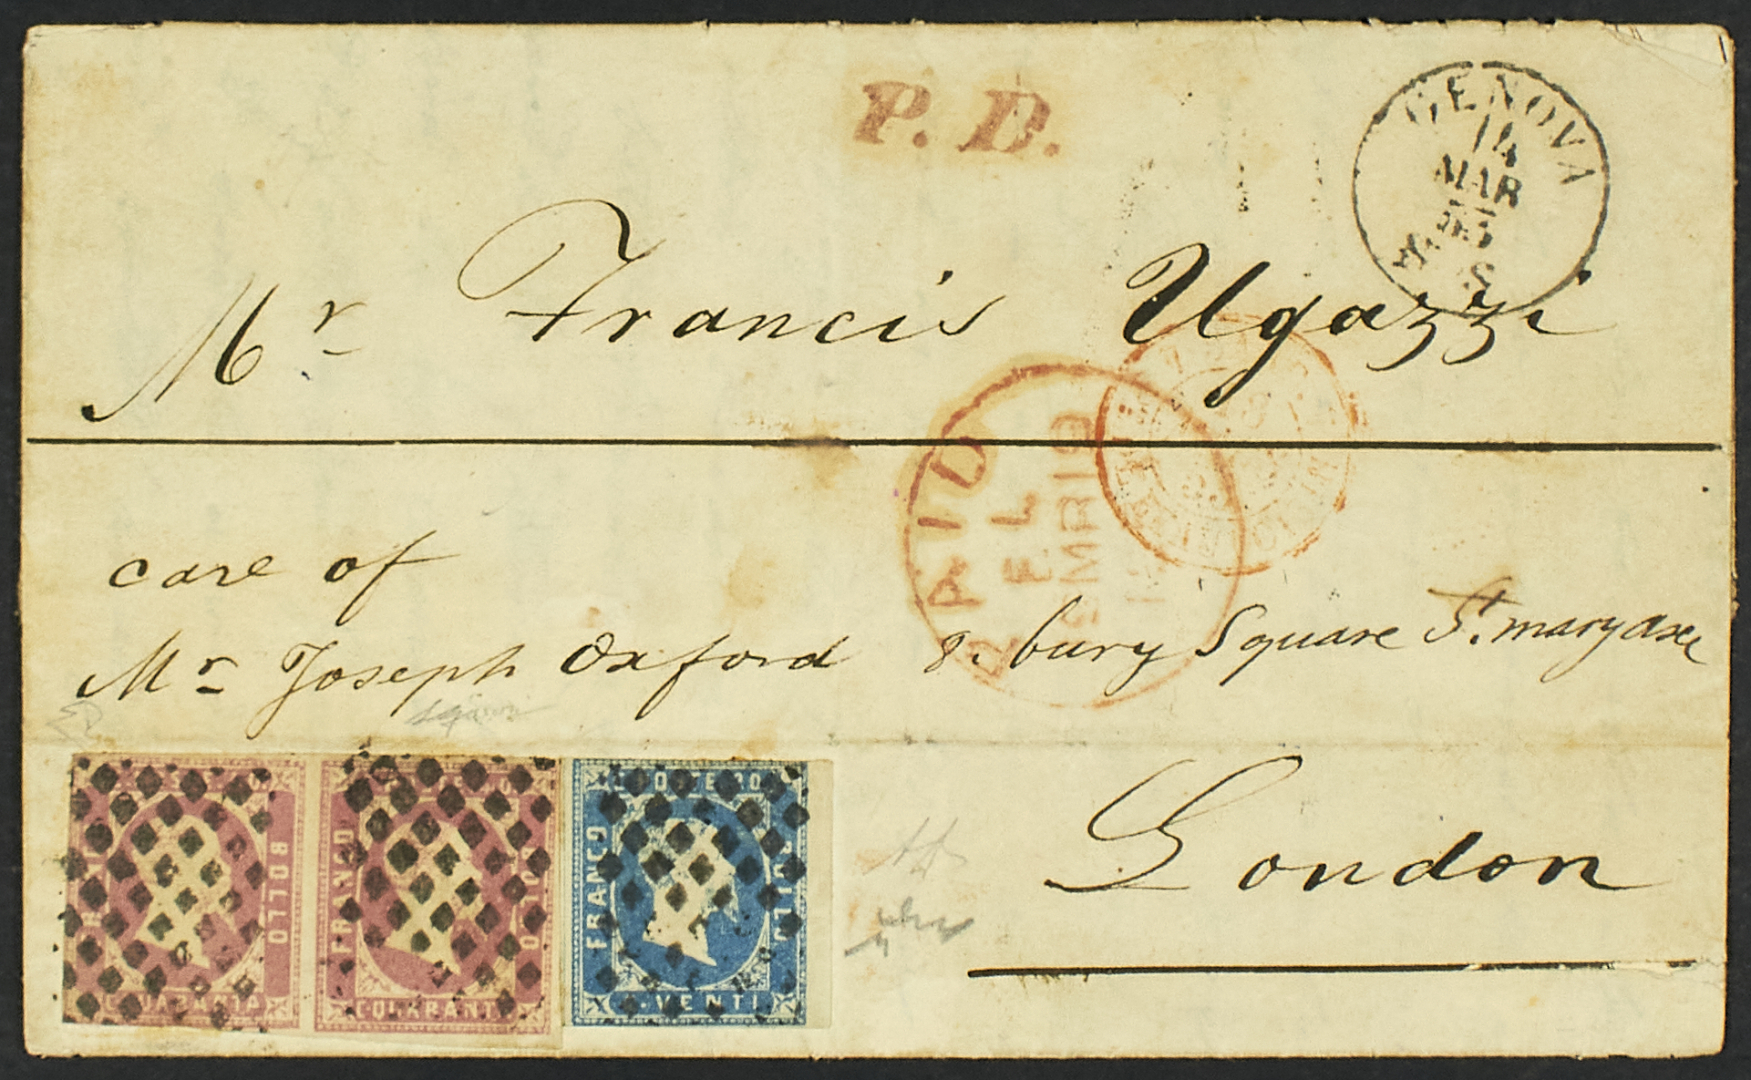 P. D.
GENOVA
14
MAR
S
Mr Francis Ugazzi
PAID
EL
MR 19
care of
Mr Joseph Oxford 8. bury Square St. mary axe
London
FRANCO BOLLO C. QUARANTA
FRANCO BOLLO C. QUARANTA
FRANCO BOLLO C. VENTI